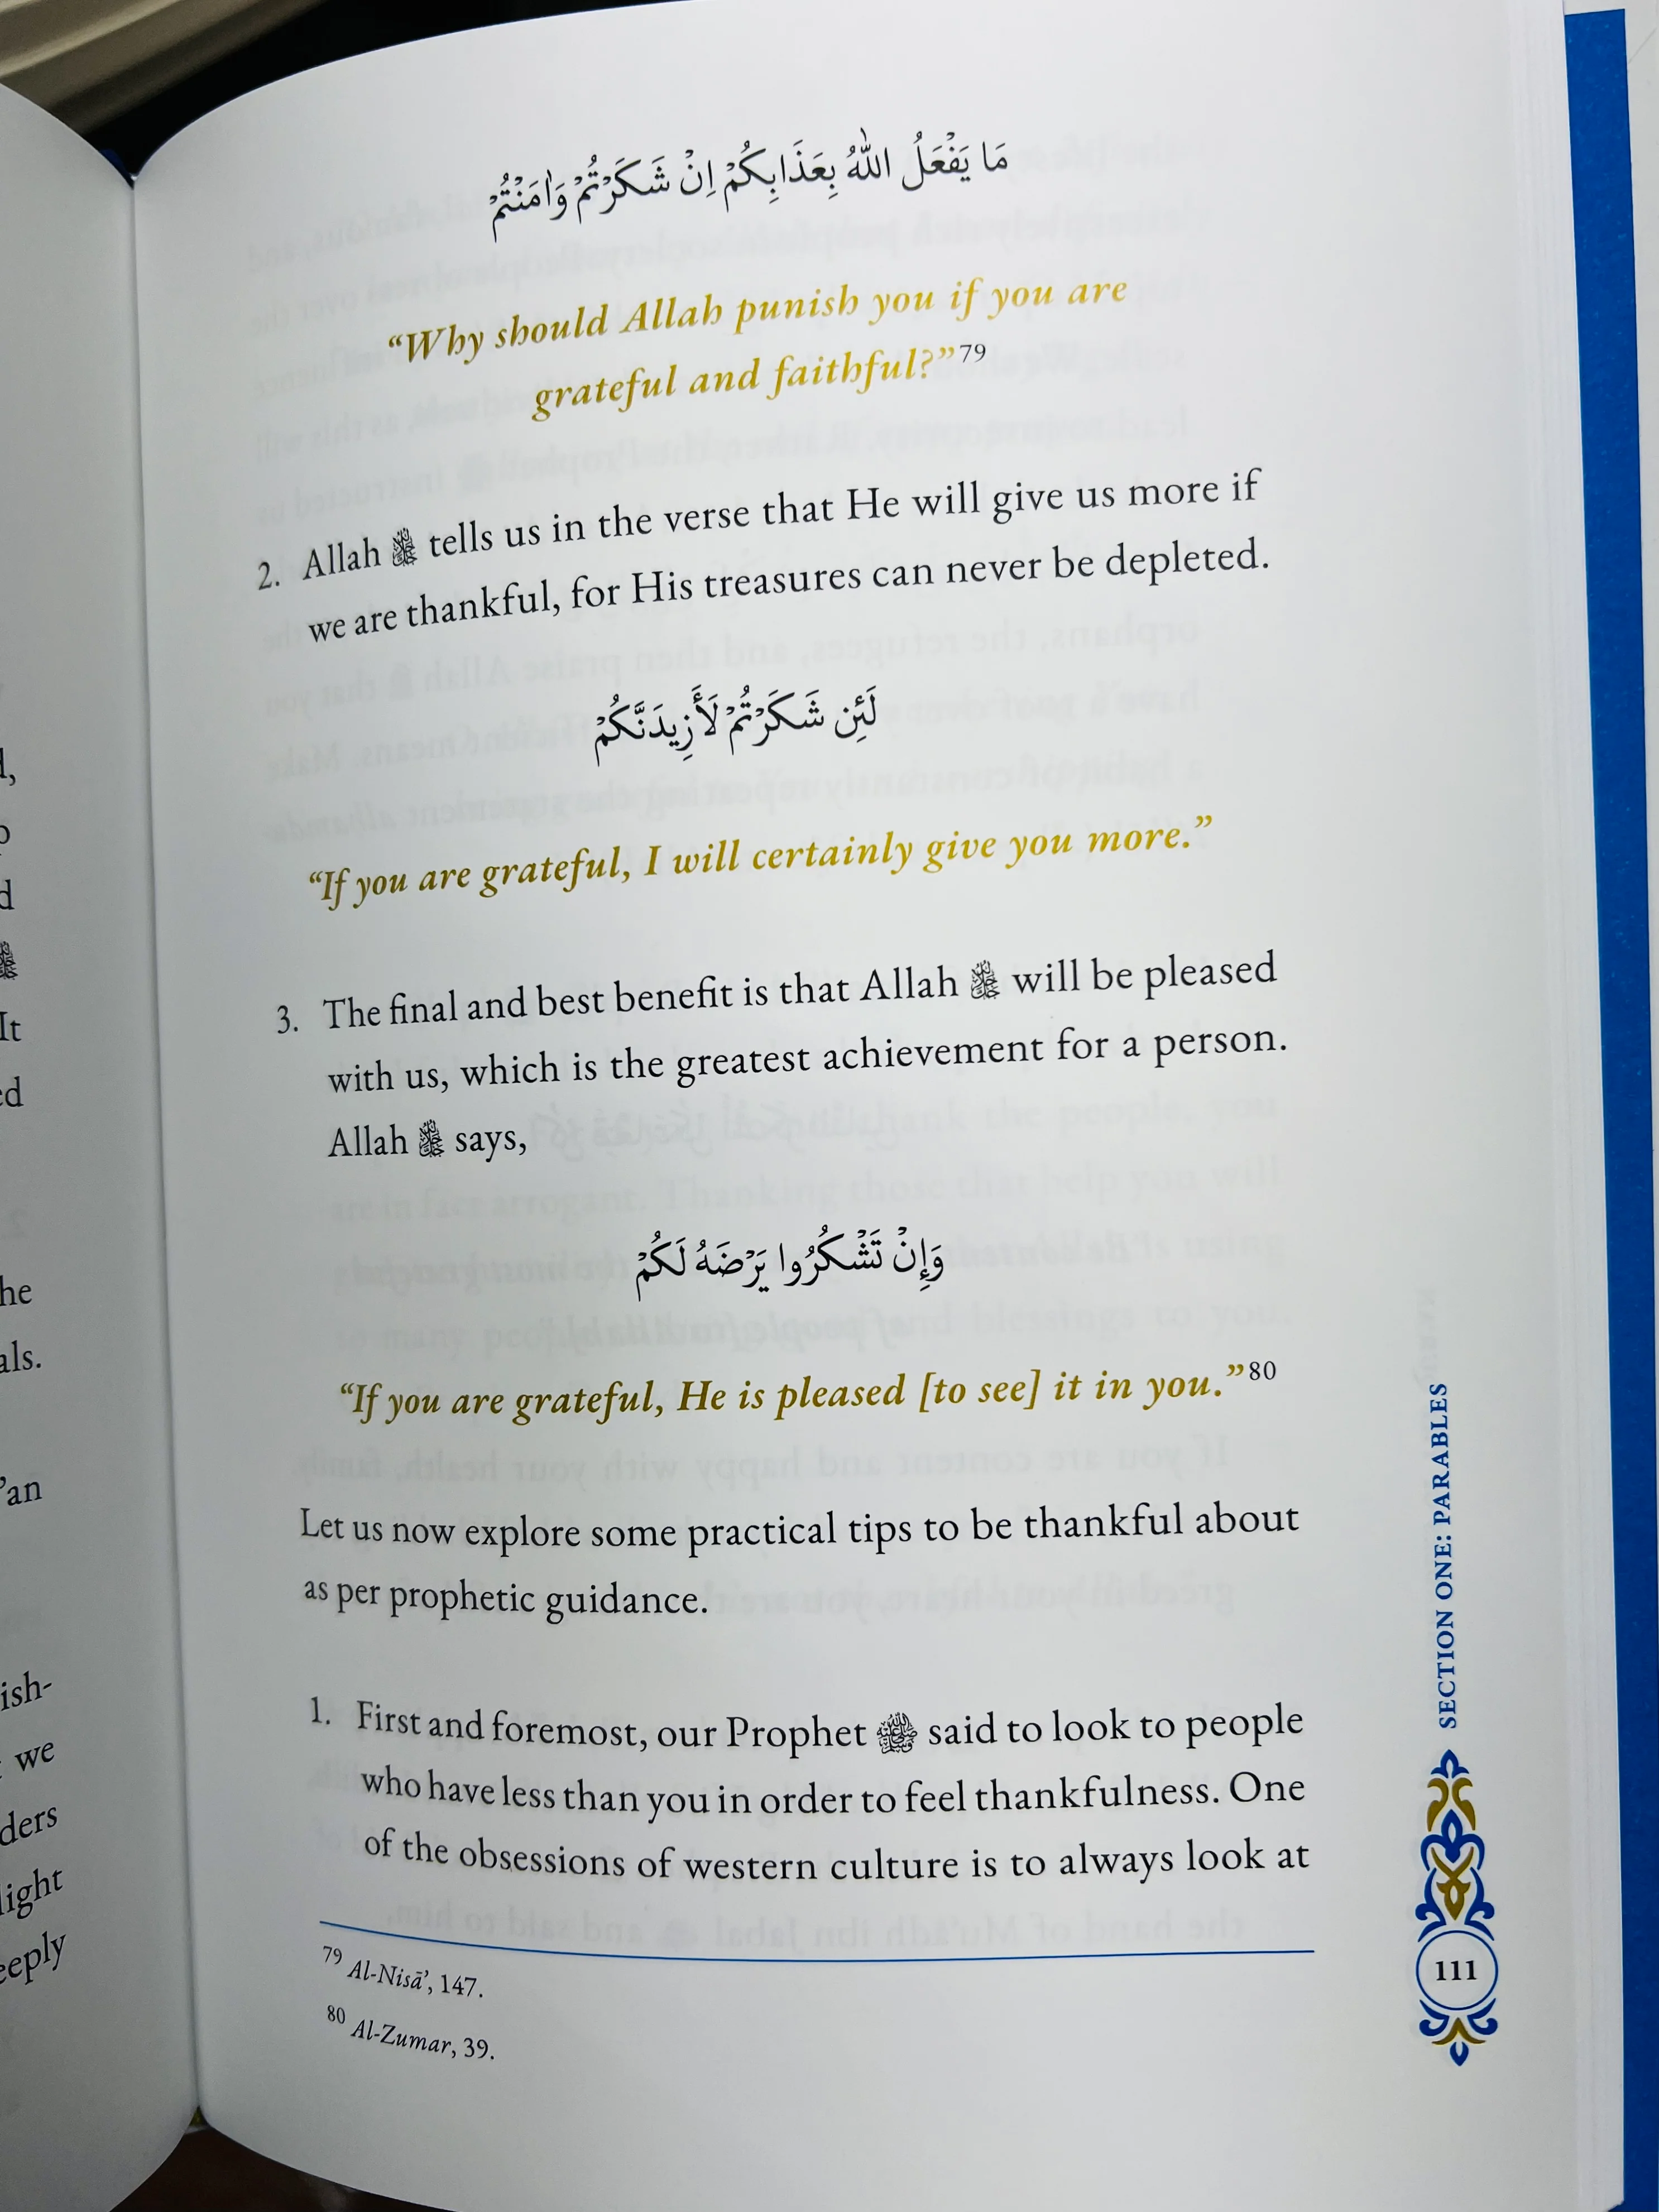 d,
d
It
ed
he
als.
'an
ish-
we
ders
light
eeply
مَا يَفْعَلُ اللّٰهُ بِعَذَابِكُمْ اِنْ شَكَرْتُمْ وَاٰمَنْتُمْ
“Why should Allah punish you if you are
grateful and faithful?”79
2. Allah ﷻ tells us in the verse that He will give us more if
we are thankful, for His treasures can never be depleted.
لَئِن شَكَرْتُمْ لَأَزِيدَنَّكُمْ
“If you are grateful, I will certainly give you more.”
3. The final and best benefit is that Allah ﷻ will be pleased
with us, which is the greatest achievement for a person.
Allah ﷻ says,
وَإِنْ تَشْكُرُوا يَرْضَهُ لَكُمْ
“If you are grateful, He is pleased [to see] it in you.”80
Let us now explore some practical tips to be thankful about
as per prophetic guidance.
1. First and foremost, our Prophet ﷺ said to look to people
who have less than you in order to feel thankfulness. One
of the obsessions of western culture is to always look at
79 Al-Nisā’, 147.
80 Al-Zumar, 39.
SECTION ONE: PARABLES
111